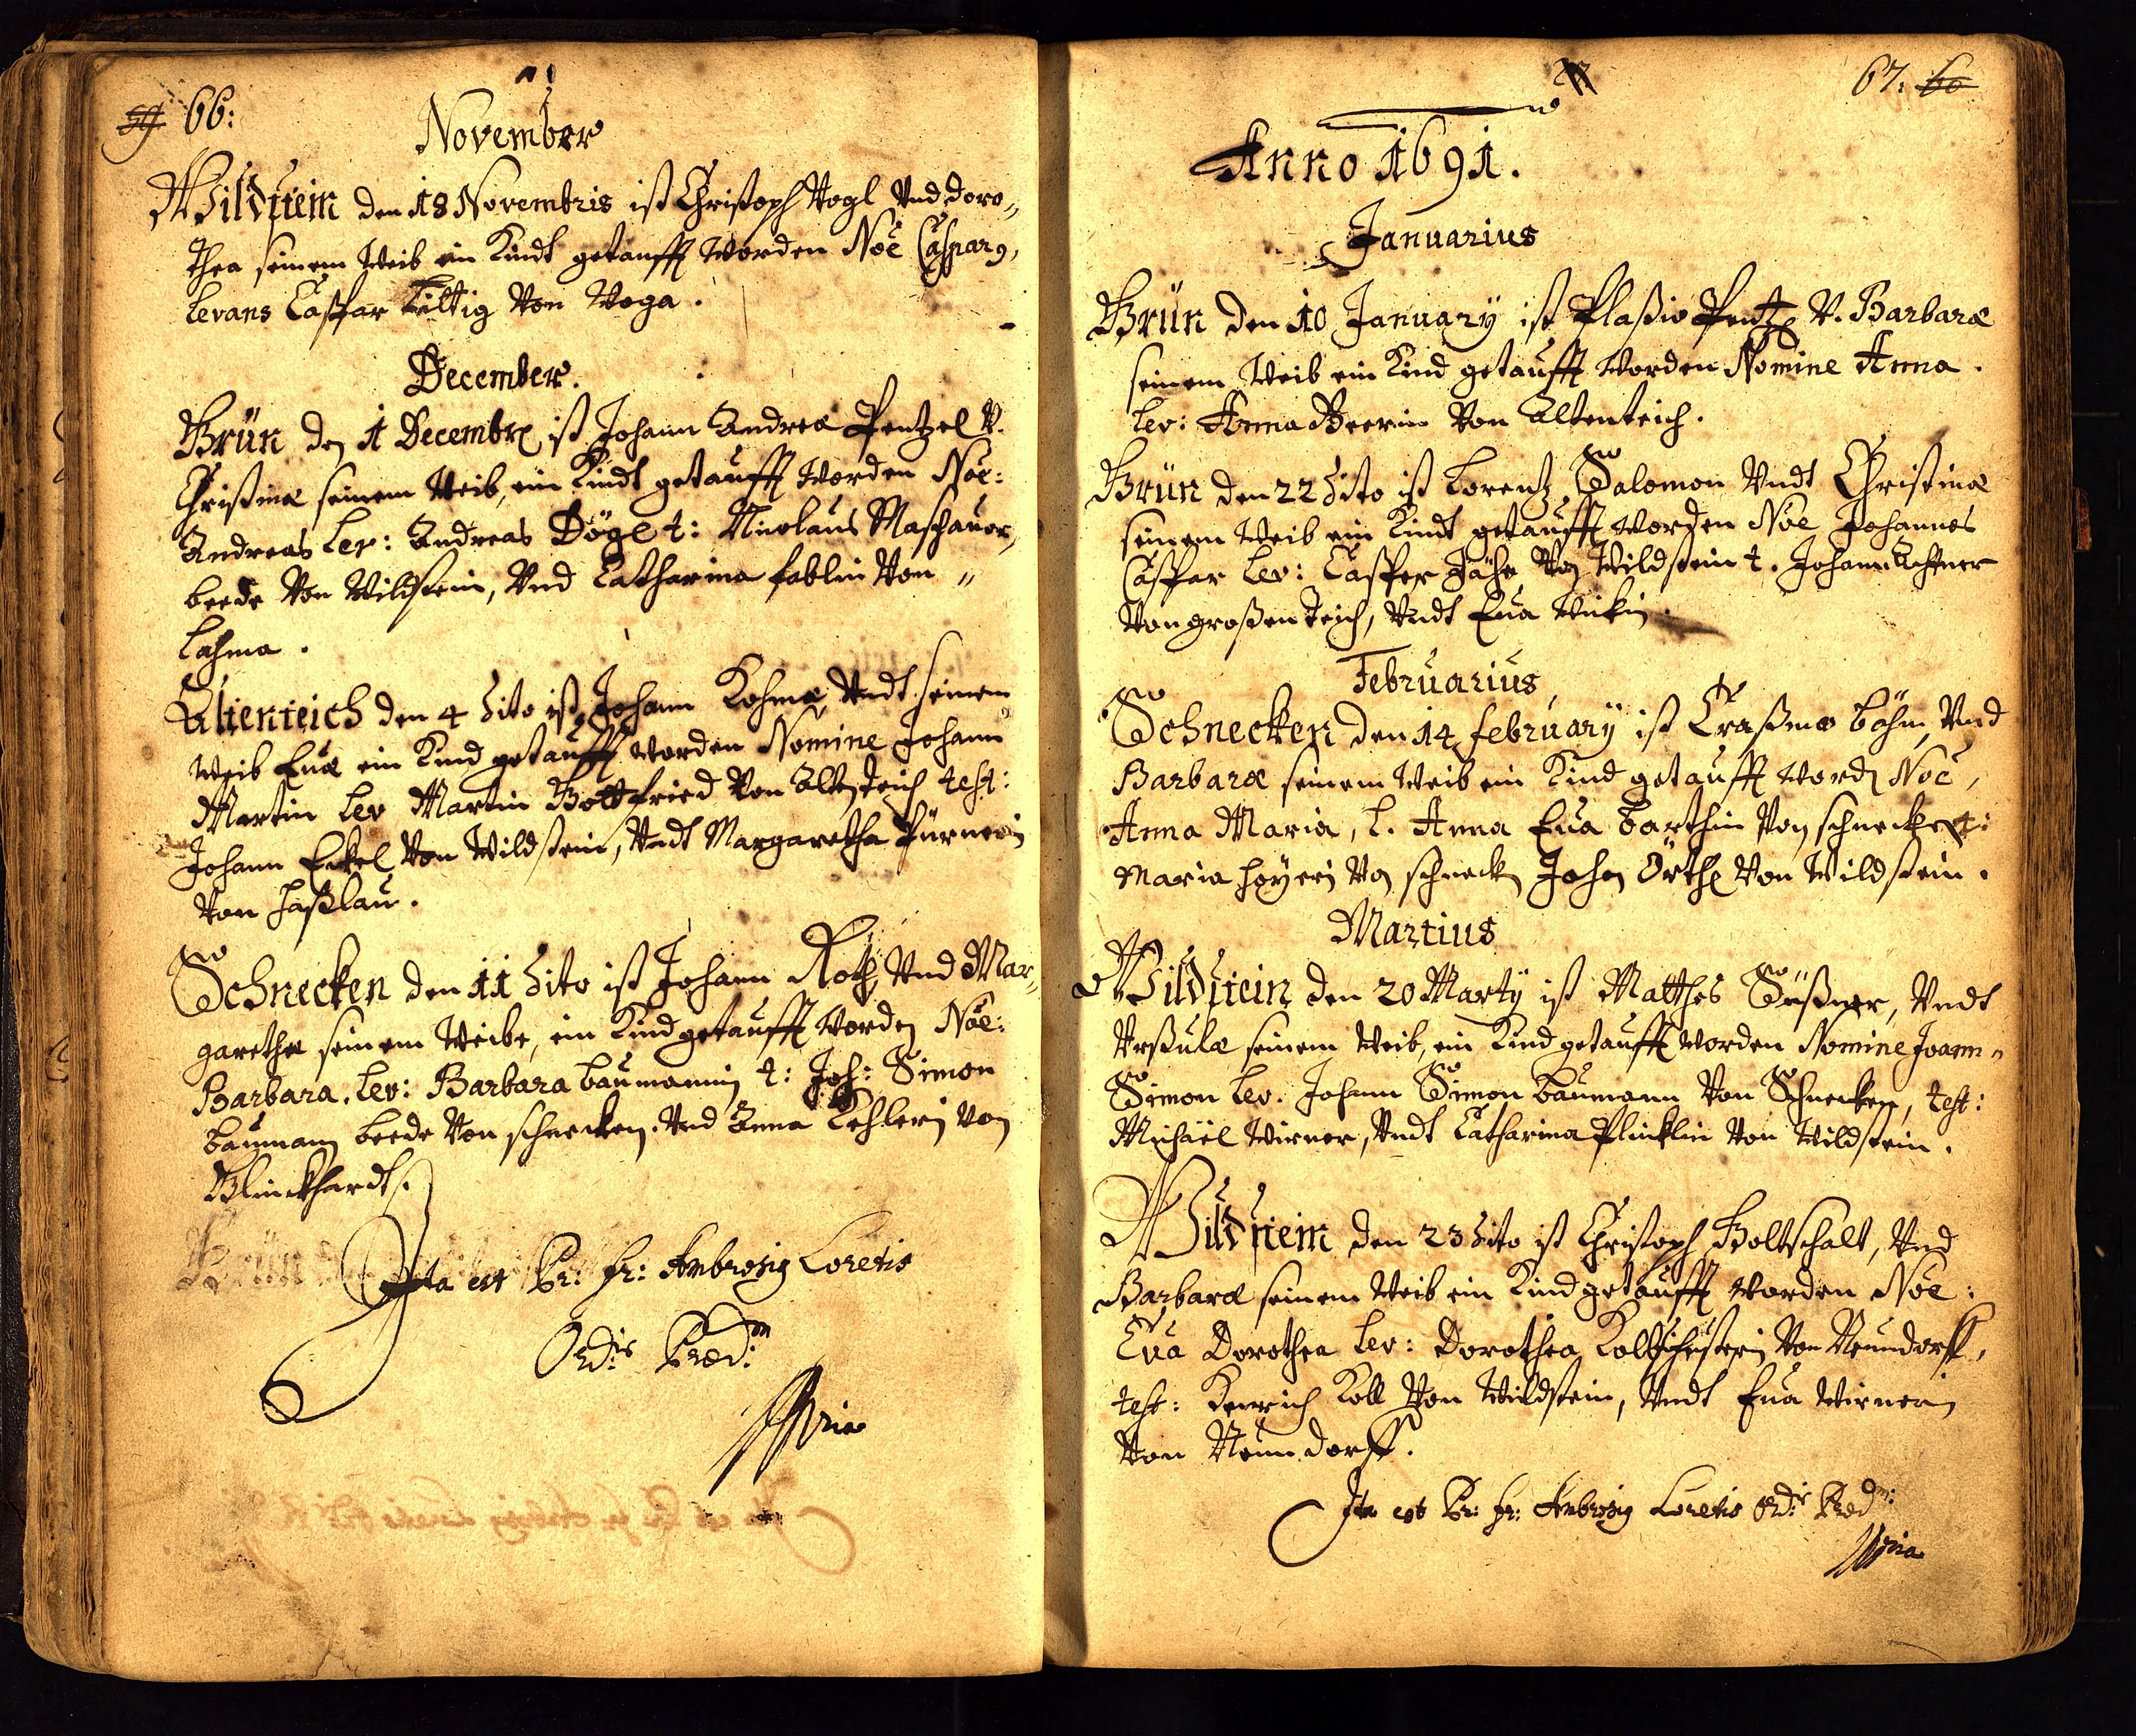 59 66:
November
Wildstein den 18 Novembris ist Christoph Vogl Vnd Doro„
thea seinem Weib ein Kindt getaufft worden Noe Casparg,
levans Caspar Kiltig Von Voga.
December.
Brün den 1 Decembr ist Johann Andreæ Pentzel V.
Christinæ seinem Weib, ein Kindt getaufft worden Noe:
Andreas lev: Andreas Dögl t: Nicolaus Maschauer,
beede Von Wildstein, Vnd Catharina fablin Von „
Lohma.
Altenteich den 4 dito ist Johann Lohmæ, Vndt seinem
Weib Euæ ein Kind getaufft worden Nomine Johann
Martin lev Martin Gottfried Von Altenteich test:
Johann Eckel Von Wildstein, Vndt Margaretha Pürnerin
Von Haßlau.
Schnecken den 11 dito ist Johann Roth, Vnd Mar„
garethæ seinem Weibe, ein Kind getaufft worden Noe:
Barbara. lev: Barbara baumannin t: Joh: Simon
baumann beede Von schnecken. Vnd Anna Kehlerin von
Klinckhardt.
Ita est Pr: fr: Ambrosig Loretis
Ord:is Præd:m
Mpria
67: 60
Anno 1691.
Januarius
Brün den 10 January ist Blasio Pentz V. Barbaræ
seinem Weib ein Kind getaufft worden Nomine Anna.
lev: Anna Beerin Von Altenteich.
Brün den 22 dito ist Lorentz Salomon Vndt Christinæ
seinem Weib ein Kindt getaufft worden Noe Johannes
Caspar lev: Casper Jähn Von Wildstein t. Johann Achtner
Von großen Teich, Vndt Eua
Februarius
Schnecken den 14 february ist Erasmo böhm, Vnd
Barbaræ seinem Weib ein Kind getaufft word Noe,
Anna Maria, l. Anna Eua barthin Von schnecken t:
Maria hoyerin Von schneck Johan Örthl Von Wildstein.
Martius
Wildstein den 20 Marty ist Matthes Süßner, Vndt
Vrsulæ seinem Weib, ein Kind getaufft worden Nomine Joann„
Simon lev. Johann Simon baumann Von Schnecken, test:
Michäel Wirner, Vndt Catharina Plincklin Von Wildstein.
Wildstein den 23 dito ist Christoph Goltschalt, Vnd
Barbaræ seinem Weib ein Kind getaufft worden Noe:
Eva Dorothea lev: Dorothea Von Neundorff,
test: Henrich Koll Von Wildstein, Vndt Eua Wirnerin
Von Neundorff.
Ita est Pr: fr: Ambrosig Loretis Ord:is Præd:m
Mpria